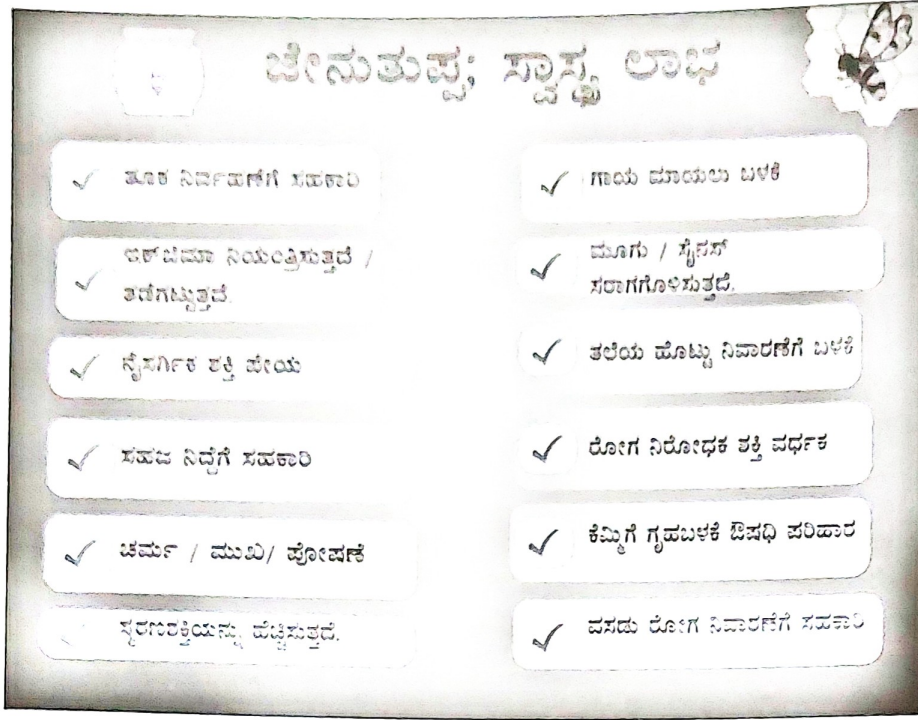 ಜೇನುತುಪ್ಪ; ಸ್ವಾಸ್ಥ್ಯ ಲಾಭ
ತೂಕ ನಿರ್ವಹಣೆಗೆ ಸಹಕಾರಿ
ಇಕ್‌ಜಿಮಾ ನಿಯಂತ್ರಿಸುತ್ತದೆ /
ತಡೆಗಟ್ಟುತ್ತದೆ.
ನೈಸರ್ಗಿಕ ಶಕ್ತಿ ಪೇಯ
ಸಹಜ ನಿದ್ದೆಗೆ ಸಹಕಾರಿ
ಚರ್ಮ / ಮುಖ/ ಪೋಷಣೆ
ಸ್ಮರಣಶಕ್ತಿಯನ್ನು ಹೆಚ್ಚಿಸುತ್ತದೆ.
ಗಾಯ ಮಾಯಲು ಬಳಕೆ
ಮೂಗು / ಸೈನಸ್
ಸರಾಗಗೊಳಿಸುತ್ತದೆ.
ತಲೆಯ ಹೊಟ್ಟು ನಿವಾರಣೆಗೆ ಬಳಕೆ
ರೋಗ ನಿರೋಧಕ ಶಕ್ತಿ ವರ್ಧಕ
ಕೆಮ್ಮಿಗೆ ಗೃಹಬಳಕೆ ಔಷಧಿ ಪರಿಹಾರ
ವಸಡು ರೋಗ ನಿವಾರಣೆಗೆ ಸಹಕಾರಿ